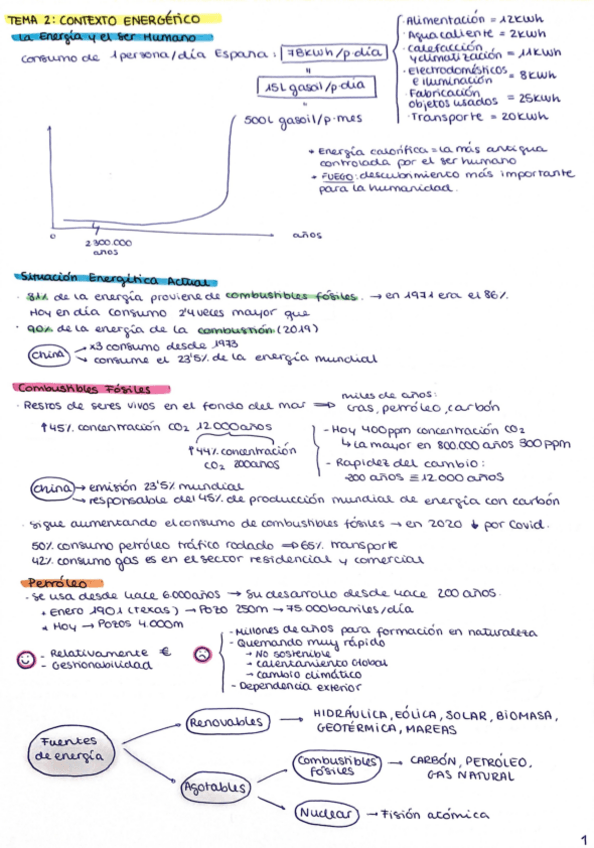 TEMA 2: CONTEXTO ENERGÉTICO
La Energía y el Ser Humano
Consumo de 1 persona/día España: 78KWh/p·día
- Alimentación = 12KWh
- Agua caliente = 2KWh
- Calefacción y climatización = 11KWh
- Electrodomésticos e iluminación = 8KWh
- Fabricación objetos usados = 25KWh
- Transporte = 20KWh
"
15L gasoil/p·día
"
500L gasoil/p·mes
* Energía calorífica = la más antigua
controlada por el ser humano
* FUEGO: descubrimiento más importante
para la humanidad.
0
2 300.000
años
años
Situación Energética Actual
· 81% de la energía proviene de combustibles fósiles. → en 1971 era el 86%
Hoy en día consumo 2'4 veces mayor que
· 90% de la energía de la combustión (2019)
China
→ x3 consumo desde 1973
→ consume el 23'5% de la energía mundial
Combustibles Fósiles
· Restos de seres vivos en el fondo del mar ⇒ miles de años:
gas, petróleo, carbón
↑45% concentración CO2 12000años
↑44% concentración
CO2 200años
- Hoy 400ppm concentración CO2
↳ La mayor en 800.000 años 300ppm
- Rapidez del cambio:
200 años ≡ 12.000 años
China
→ emisión 23'5% mundial
→ responsable del 45% de producción mundial de energía con carbón
· Sigue aumentando el consumo de combustibles fósiles → en 2020 ↓ por Covid.
50% consumo petróleo tráfico rodado ⇒ 65% transporte
42% consumo gas es en el sector residencial y comercial
Petróleo
· Se usa desde hace 6.000años → Su desarollo desde hace 200 años.
* Enero 1901 (Texas) → Pozo 250m → 75.000 barriles/día
* Hoy → Pozos 4.000m
- Relativamente €
- Gestionabilidad
- Millones de años para formación en naturaleza
- Quemando muy rápido
→ No sostenible
→ Calentamiento Global
→ Cambio climático
- Dependencia exterior
Fuentes
de energía
Renovables → HIDRÁULICA, EÓLICA, SOLAR, BIOMASA,
GEOTÉRMICA, MAREAS
Agotables
Combustibles
fósiles → CARBÓN, PETRÓLEO,
GAS NATURAL
Nuclear → Fisión atómica
1